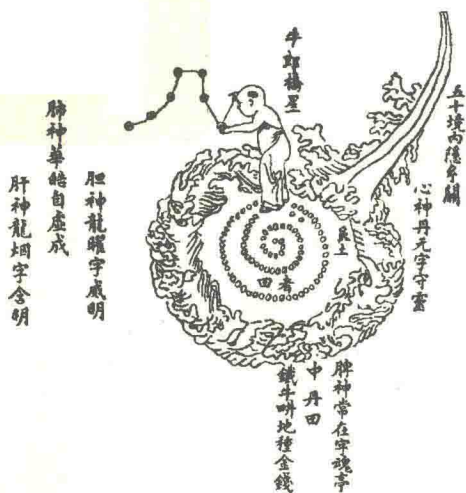 五十境內隱玄關
心神丹元字守靈
牛郎橋星
艮土
脾神常在字魂亭
中丹田
鐵牛畊地種金錢
胆神龍曜字威明
肺神華皓自虛成
肝神龍烟字含明